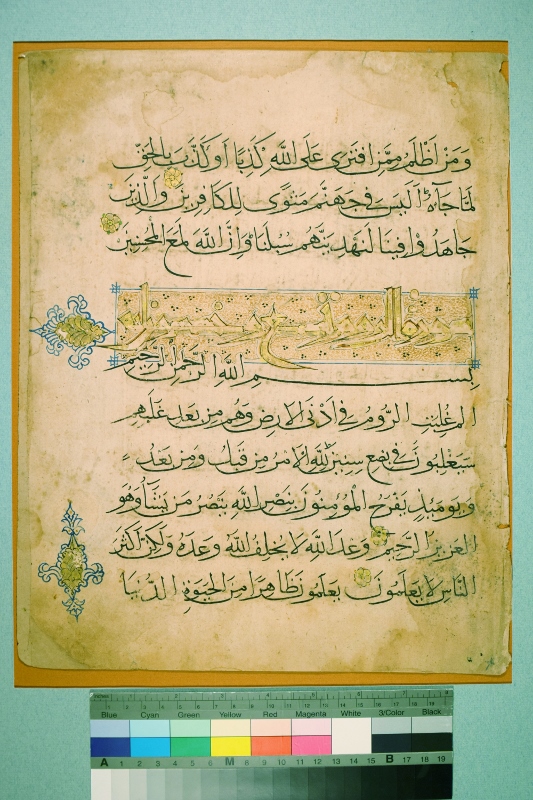 وَمَنْ أَظْلَمُ مِمَّنِ افْتَرَى عَلَى اللَّهِ كَذِبًا أَوْ كَذَّبَ بِالْحَقِّ
لَمَّا جَاءَهُ أَلَيْسَ فِي جَهَنَّمَ مَثْوًى لِلْكَافِرِينَ وَالَّذِينَ
جَاهَدُوا فِينَا لَنَهْدِيَنَّهُمْ سُبُلَنَا وَإِنَّ اللَّهَ لَمَعَ الْمُحْسِنِينَ
سورة الروم تسع وخمسون اية
بِسْمِ اللَّهِ الرَّحْمَنِ الرَّحِيمِ
الم غُلِبَتِ الرُّومُ فِي أَدْنَى الْأَرْضِ وَهُمْ مِنْ بَعْدِ غَلَبِهِمْ
سَيَغْلِبُونَ فِي بِضْعِ سِنِينَ لِلَّهِ الْأَمْرُ مِنْ قَبْلُ وَمِنْ بَعْدُ
وَيَوْمَئِذٍ يَفْرَحُ الْمُؤْمِنُونَ بِنَصْرِ اللَّهِ يَنْصُرُ مَنْ يَشَاءُ وَهُوَ
الْعَزِيزُ الرَّحِيمُ وَعْدَ اللَّهِ لَا يُخْلِفُ اللَّهُ وَعْدَهُ وَلَكِنَّ أَكْثَرَ
النَّاسِ لَا يَعْلَمُونَ يَعْلَمُونَ ظَاهِرًا مِنَ الْحَيٰوةِ الدُّنْيَا
Blue Cyan Green Yellow Red Magenta White 3/Color Black
A 1 2 3 4 5 6 M 8 9 10 11 12 13 14 15 B 17 18 19